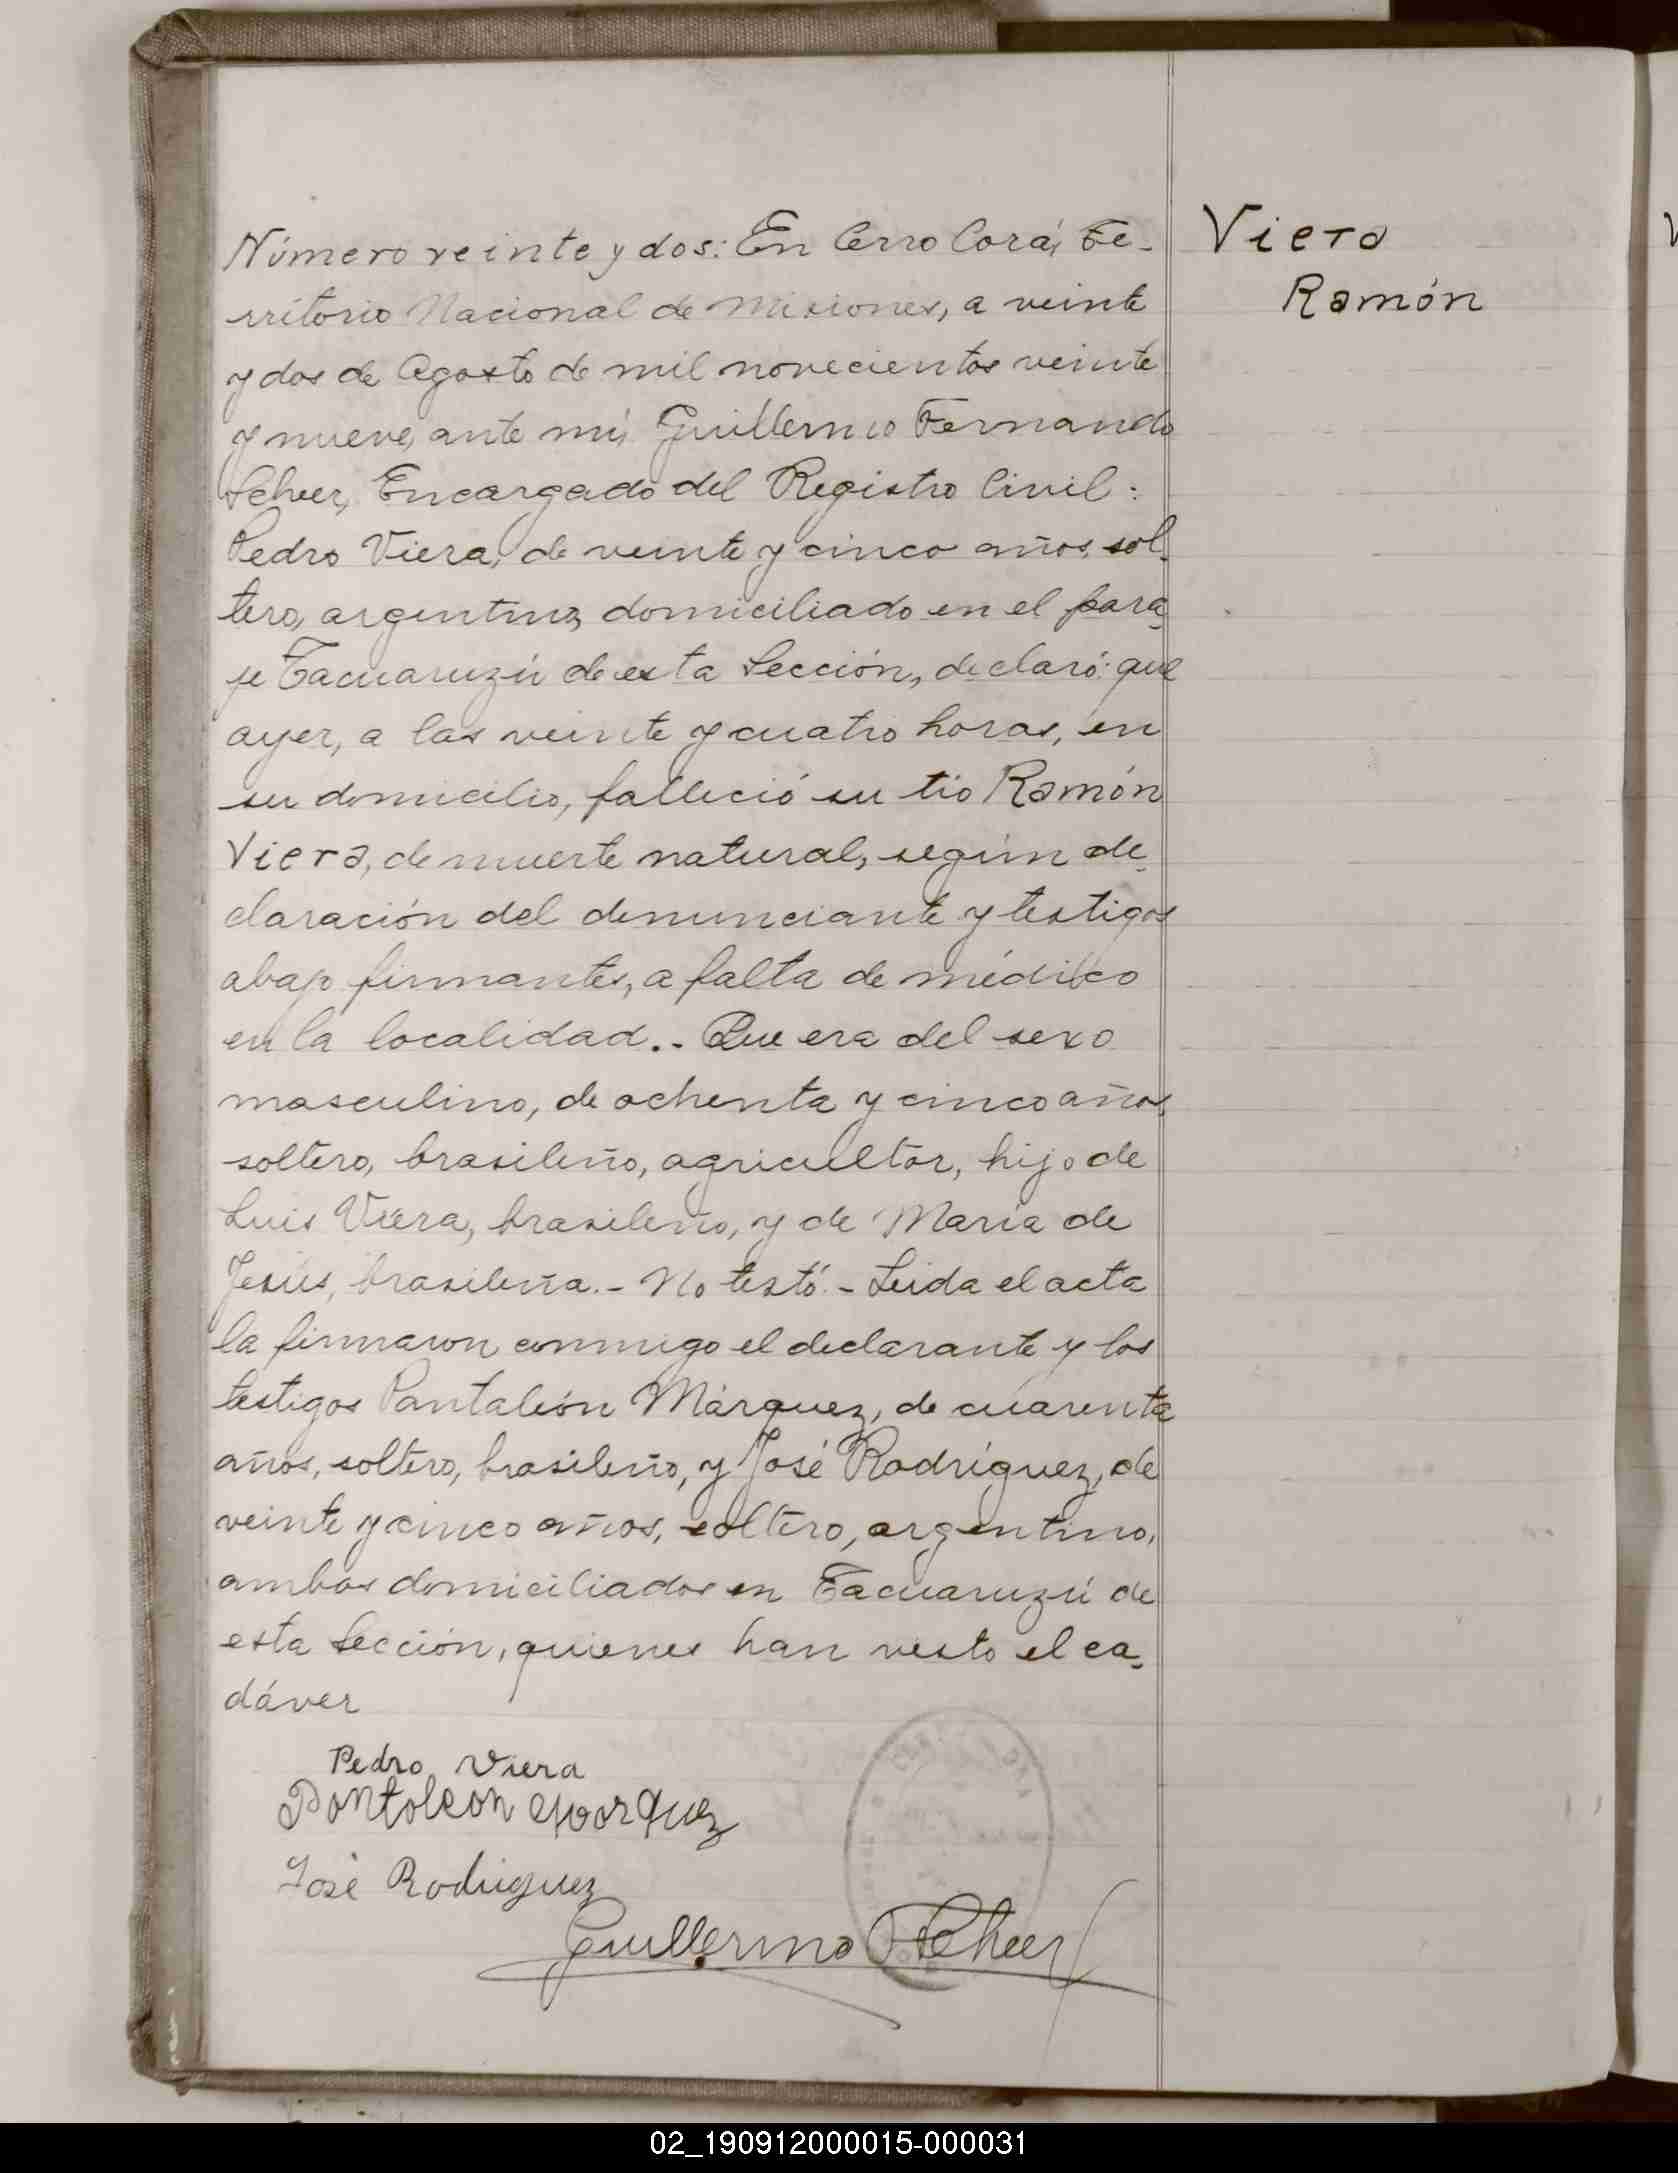 Número veinte y dos: En Cerro Corá, Te-
rritorio Nacional de Misiones, a veinte
y dos de Agosto de mil novecientos veinte
y nueve, ante mí, Guillermo Fernando
Scheer, Encargado del Registro Civil:
Pedro Viera, de veinte y cinco años, sol-
tero, argentino, domiciliado en el para-
je Tacuaruzú de esta Sección, declaró: que
ayer, a las veinte y cuatro horas, en
su domicilio, falleció su tío Ramón
Viera, de muerte natural, según de-
claración del denunciante y testigos
abajo firmantes, a falta de médico
en la localidad.- Que era del sexo
masculino, de ochenta y cinco años,
soltero, brasileño, agricultor, hijo de
Luis Viera, brasileño, y de María de
Jesús, brasileña.- No testó.- Leida el acta
la firmaron conmigo el declarante y los
testigos Pantaleón Márquez, de cuarenta
años, soltero, brasileño, y José Rodríguez, de
veinte y cinco años, soltero, argentino,
ambos domiciliados en Tacuaruzú de
esta Sección, quienes han visto el ca-
dáver
Pedro Viera
Pantoleon Marquez
José Rodriguez
Guillermo F Scheer
Viera
Ramón
02_190912000015-000031